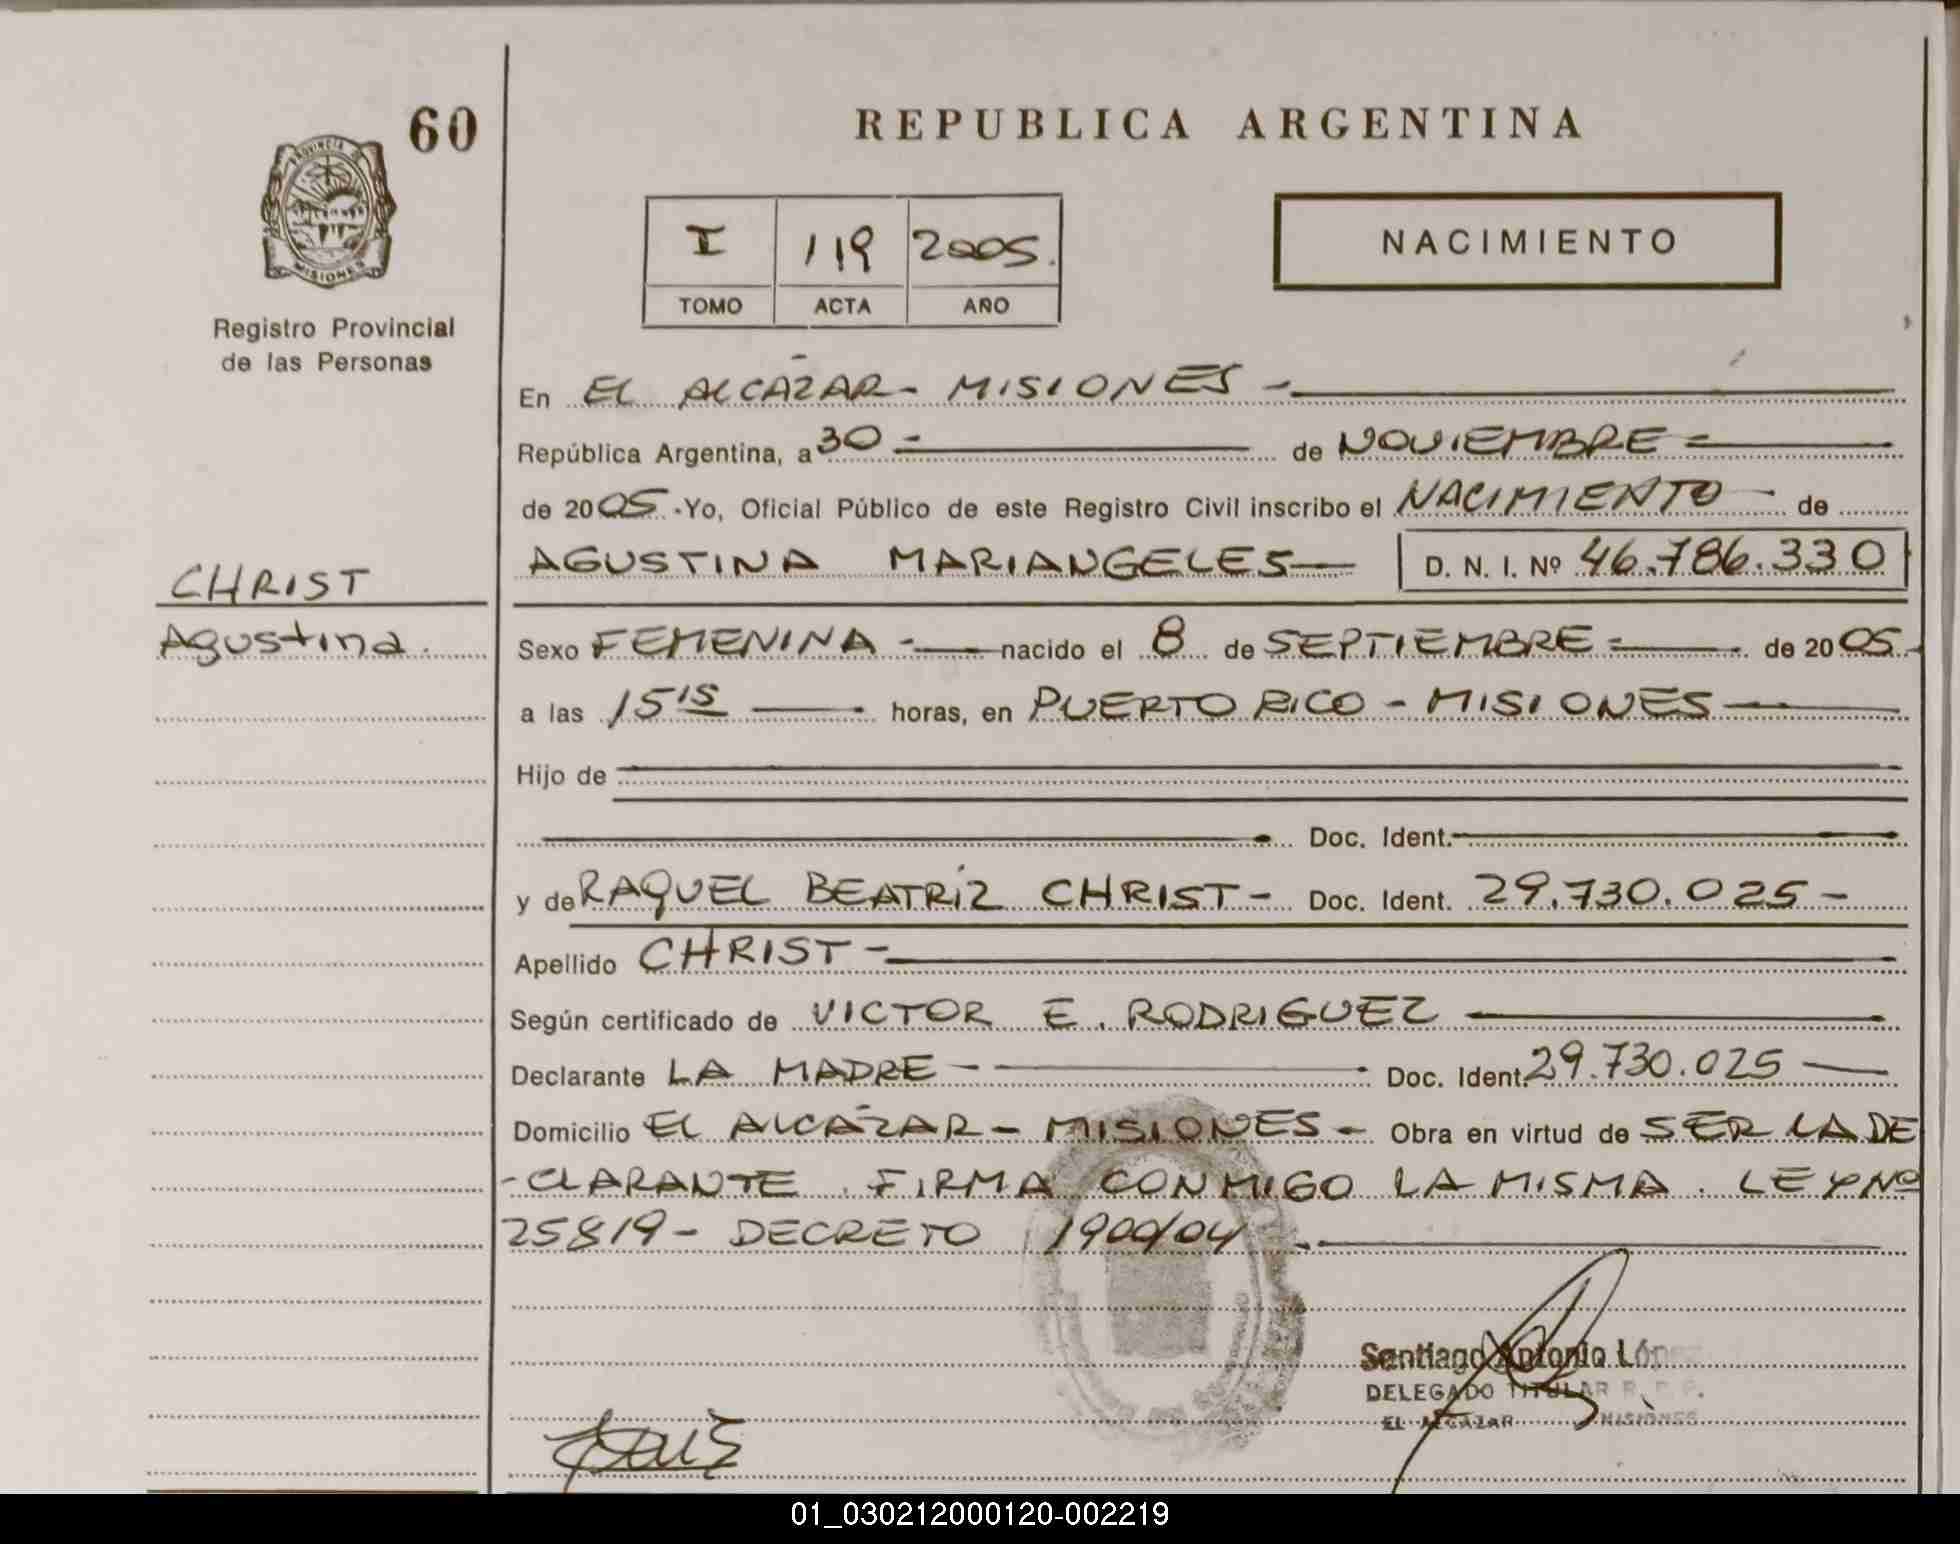 60
PROVINCIA DE
MISIONES
Registro Provincial
de las Personas
CHRIST
Agustina.
REPUBLICA ARGENTINA
I 119 2005.
TOMO ACTA AÑO
NACIMIENTO
En EL ALCÁZAR - MISIONES -
República Argentina, a 30 - de NOVIEMBRE =
de 2005 -Yo, Oficial Público de este Registro Civil inscribo el NACIMIENTO - de
AGUSTINA MARIANGELES - D. N. I. Nº 46.786.330
Sexo FEMENINA - nacido el 8 de SEPTIEMBRE = de 2005-
a las 15 15 horas, en PUERTO RICO - MISIONES -
Hijo de
Doc. Ident.
y de RAQUEL BEATRIZ CHRIST - Doc. Ident. 29.730.025 -
Apellido CHRIST -
Según certificado de VICTOR E. RODRIGUEZ
Declarante LA MADRE - Doc. Ident. 29.730.025
Domicilio EL ALCÁZAR - MISIONES - Obra en virtud de SER LA DE
-CLARANTE. FIRMA CONMIGO LA MISMA. LEY Nº
25819 - DECRETO 1900/04
Santiago Antonio López
DELEGADO TITULAR R. P. P.
EL ALCAZAR MISIONES
01_030212000120-002219